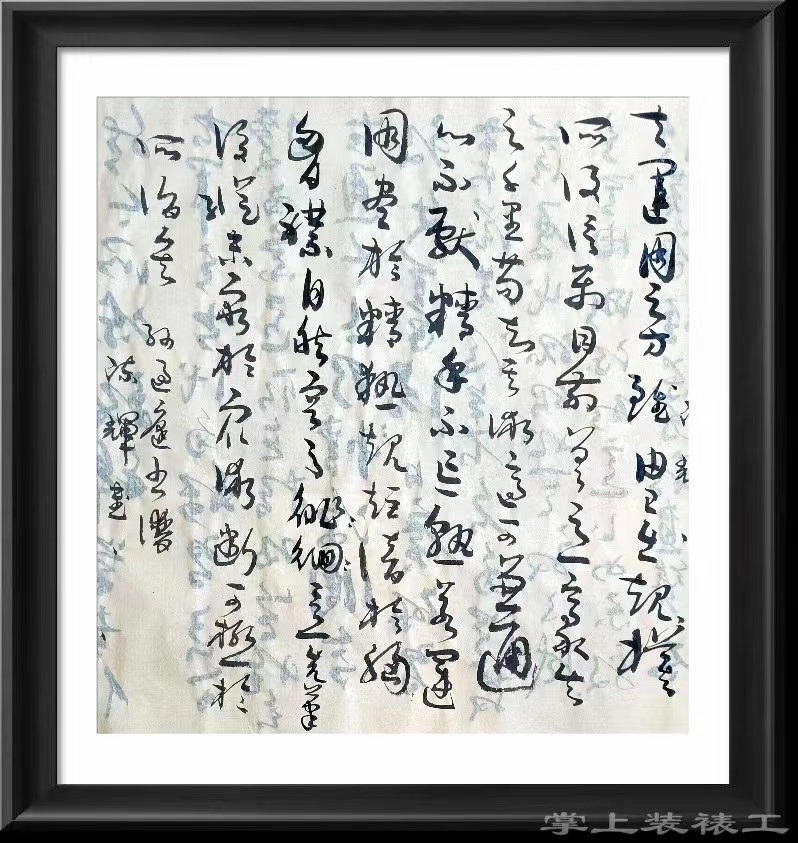 夫運用之方雖由己出規模
所設信屬目前差之一豪失
之千里苟知其術適可兼通
心不厭精手不忘熟若運
用盡於精熟規矩諳於胸
襟自然容與徘徊意先筆
後縱未窮於眾術斷可極於
所詣矣 孫過庭書譜
輝書
掌上装裱工